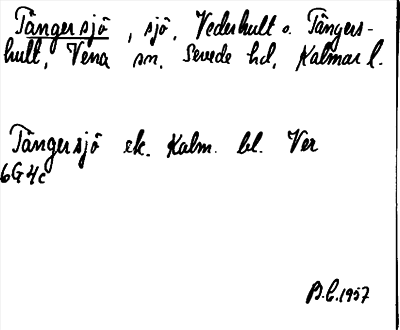 Tångersjö, sjö, Vederhult o. Tångers-
hult, Vena sn, Sevede hd, Kalmar l.
Tångersjö ek. Kalm. bl. Ver
6G4c
B.C. 1957